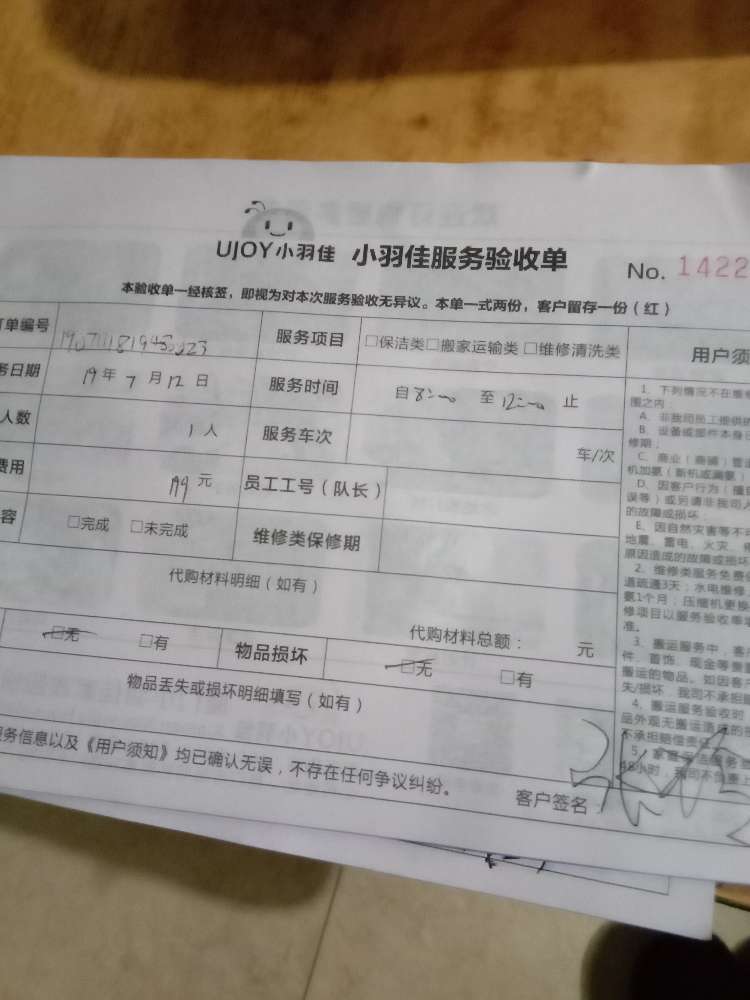 UJOY小羽佳 小羽佳服务验收单 No. 1422
本验收单一经核签，即视为对本次服务验收无异议。本单一式两份，客户留存一份（红）
单编号 服务项目 □保洁类□搬家运输类□维修清洗类 用户须
务日期 19年7月12日 服务时间 自8:00 至12:00 止
人数 1人 服务车次 车/次
费用 199元 员工工号（队长）
容 □完成 □未完成 维修类保修期
代购材料明细（如有）
代购材料总额： 元
□无 □有 物品损坏 □无 □有
物品丢失或损坏明细填写（如有）
务信息以及《用户须知》均已确认无误，不存在任何争议纠纷。
客户签名：
1、下列情况不在
围之内：
A、非我司员工提供
B、设备或部件本身
修期；
C、商业（商铺）
机加氨（新机或漏氨）
D、因客户行为
误等）或另请非我司人
的故障或损坏
E、因自然灾害等不
地震、雷电、火灾、
原因造成的故障或损坏
2、维修类服务免费
道疏通3天；水电维修
氨1个月；压缩机更换
修项目以服务验收单
准。
3、搬运服务中，客
件、首饰、现金等贵重
搬运的物品。如因客户
失/损坏，我司不承担
4、搬运服务验收时
品外观无搬运造成的
不承担赔偿责任
48小时，我司不负责